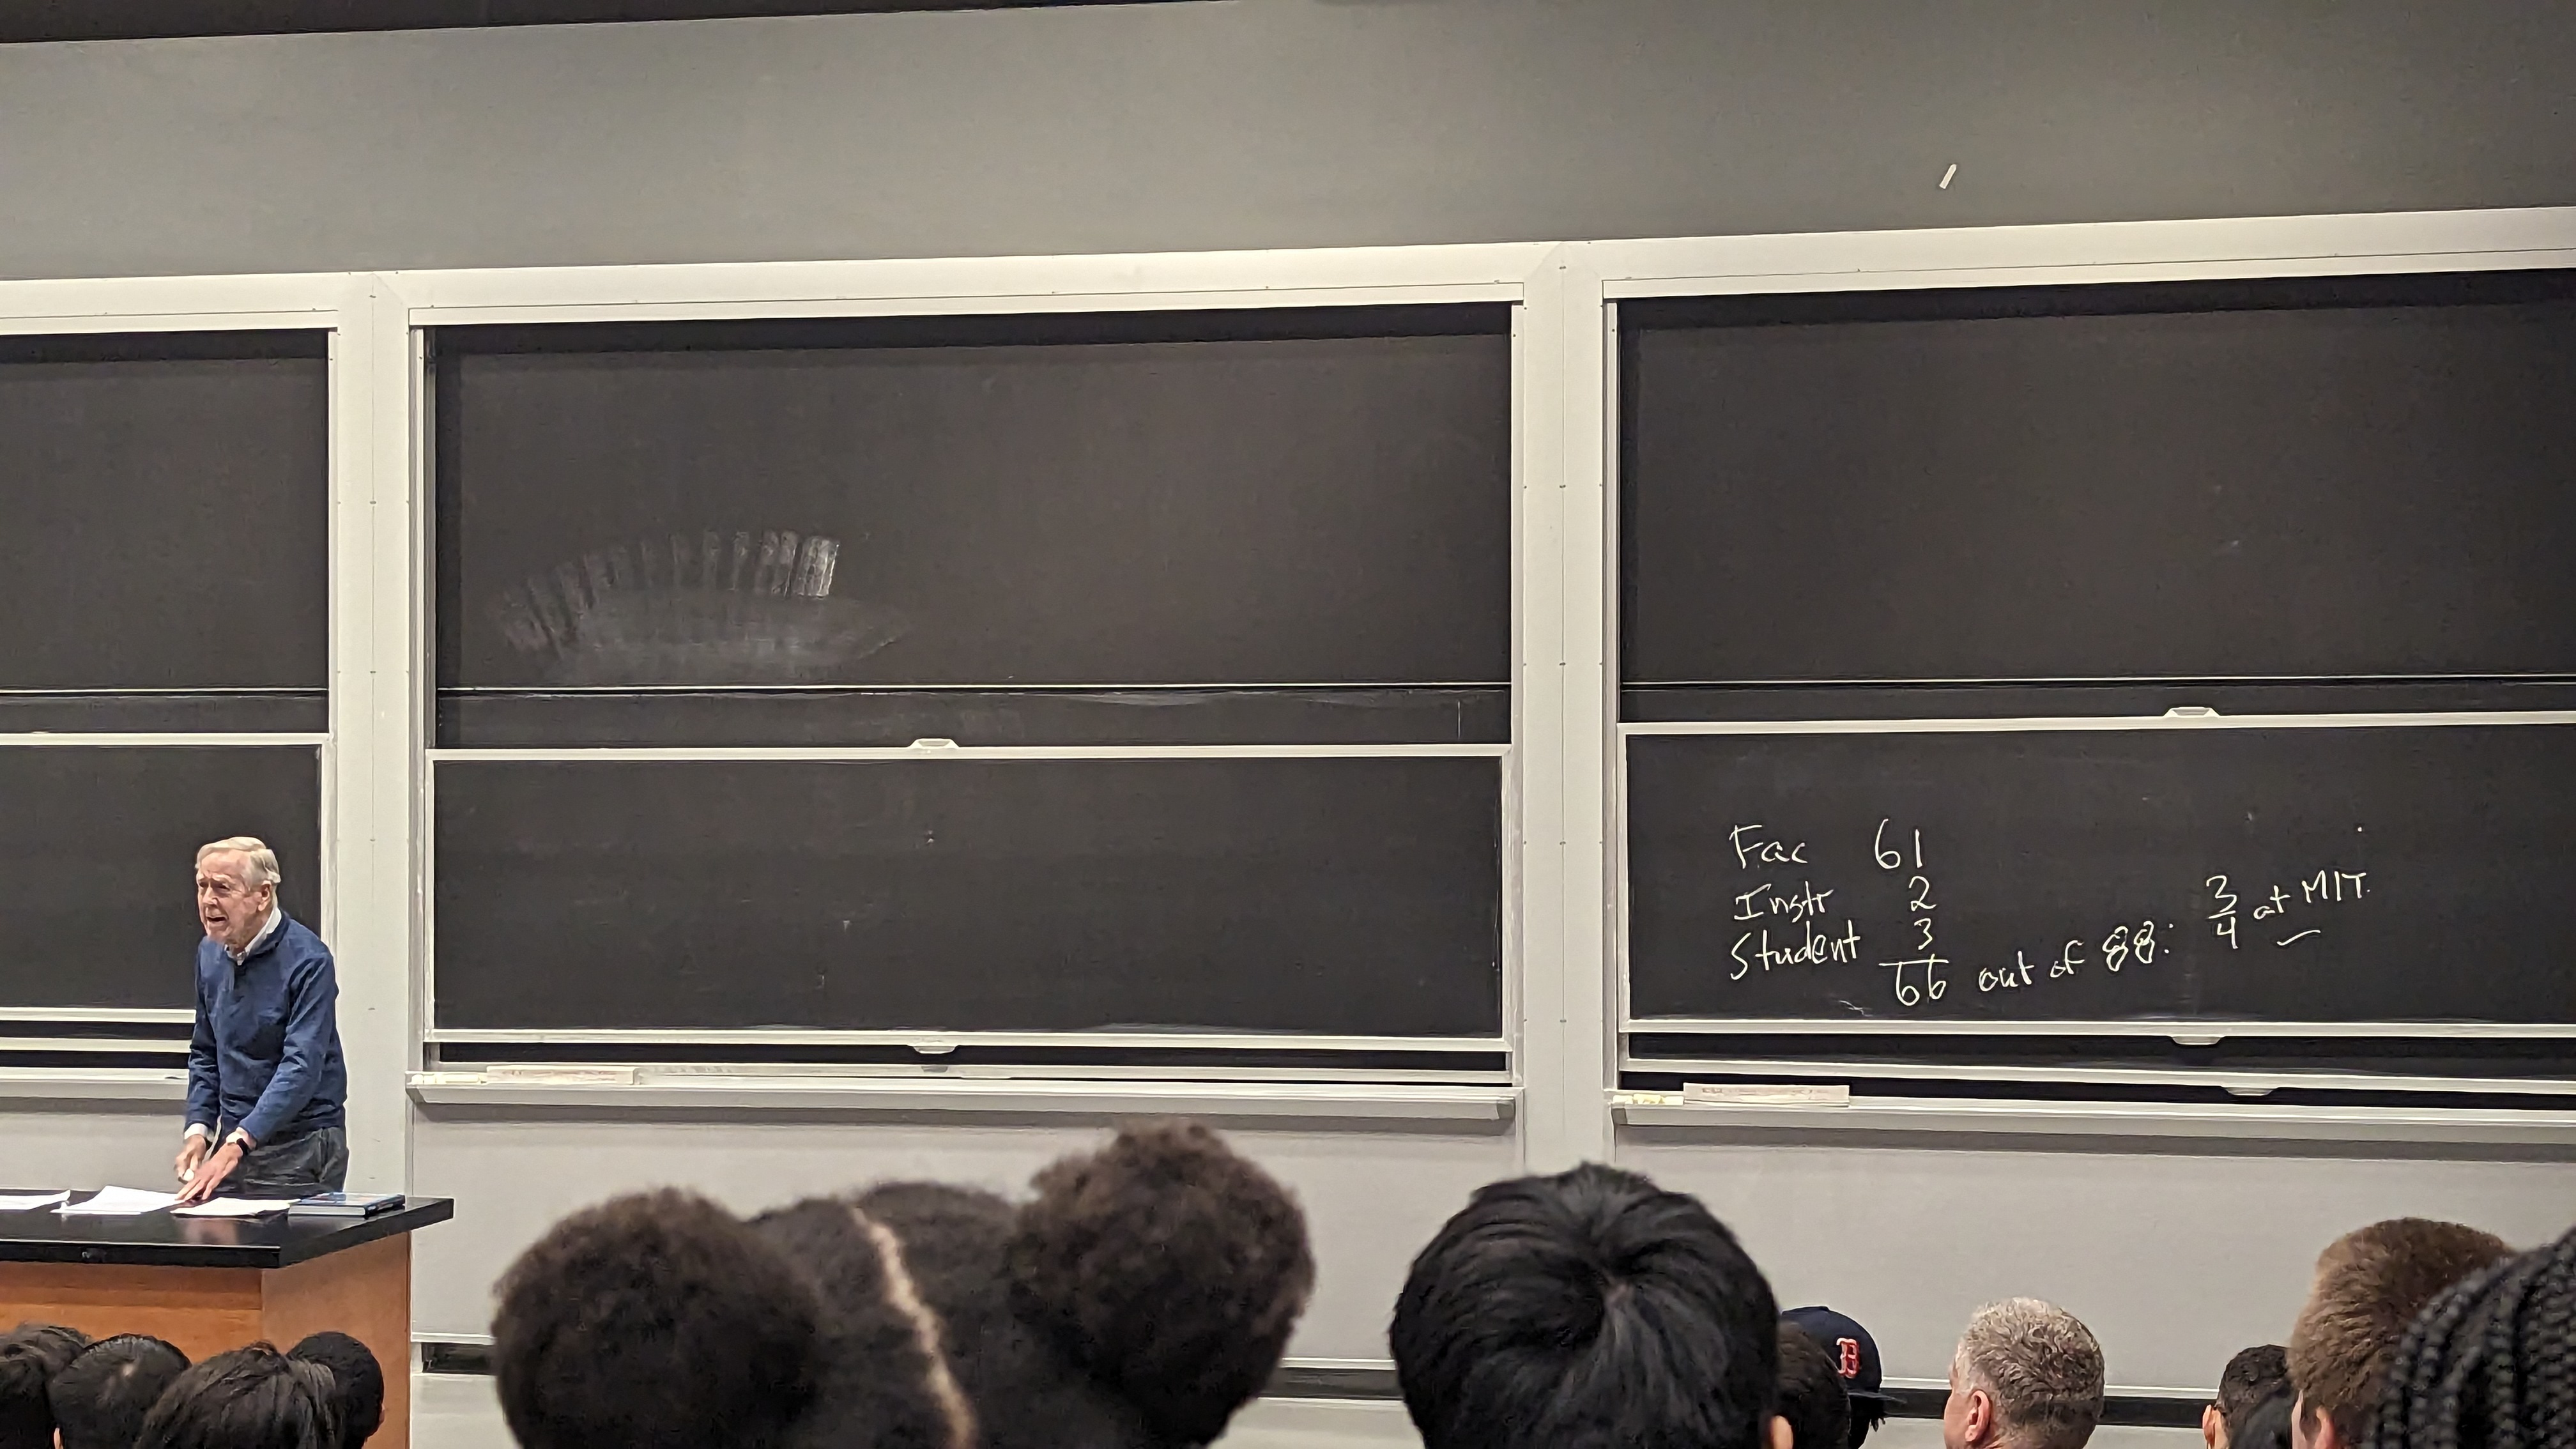 Fac 61
Instr 2
Student 3
66 out of 88: 3/4 at MIT.
B